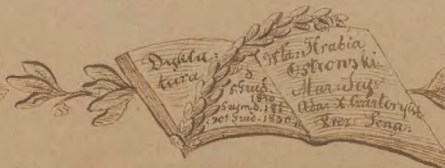 Dykta=
tura
d
5 Grud.
1830
Sejm d. 18
20t Grud. 1830
Wła: Hrabia
Ostrowski
Mar: Sej:
Adam X. Czartorysk
Prez: Sena: